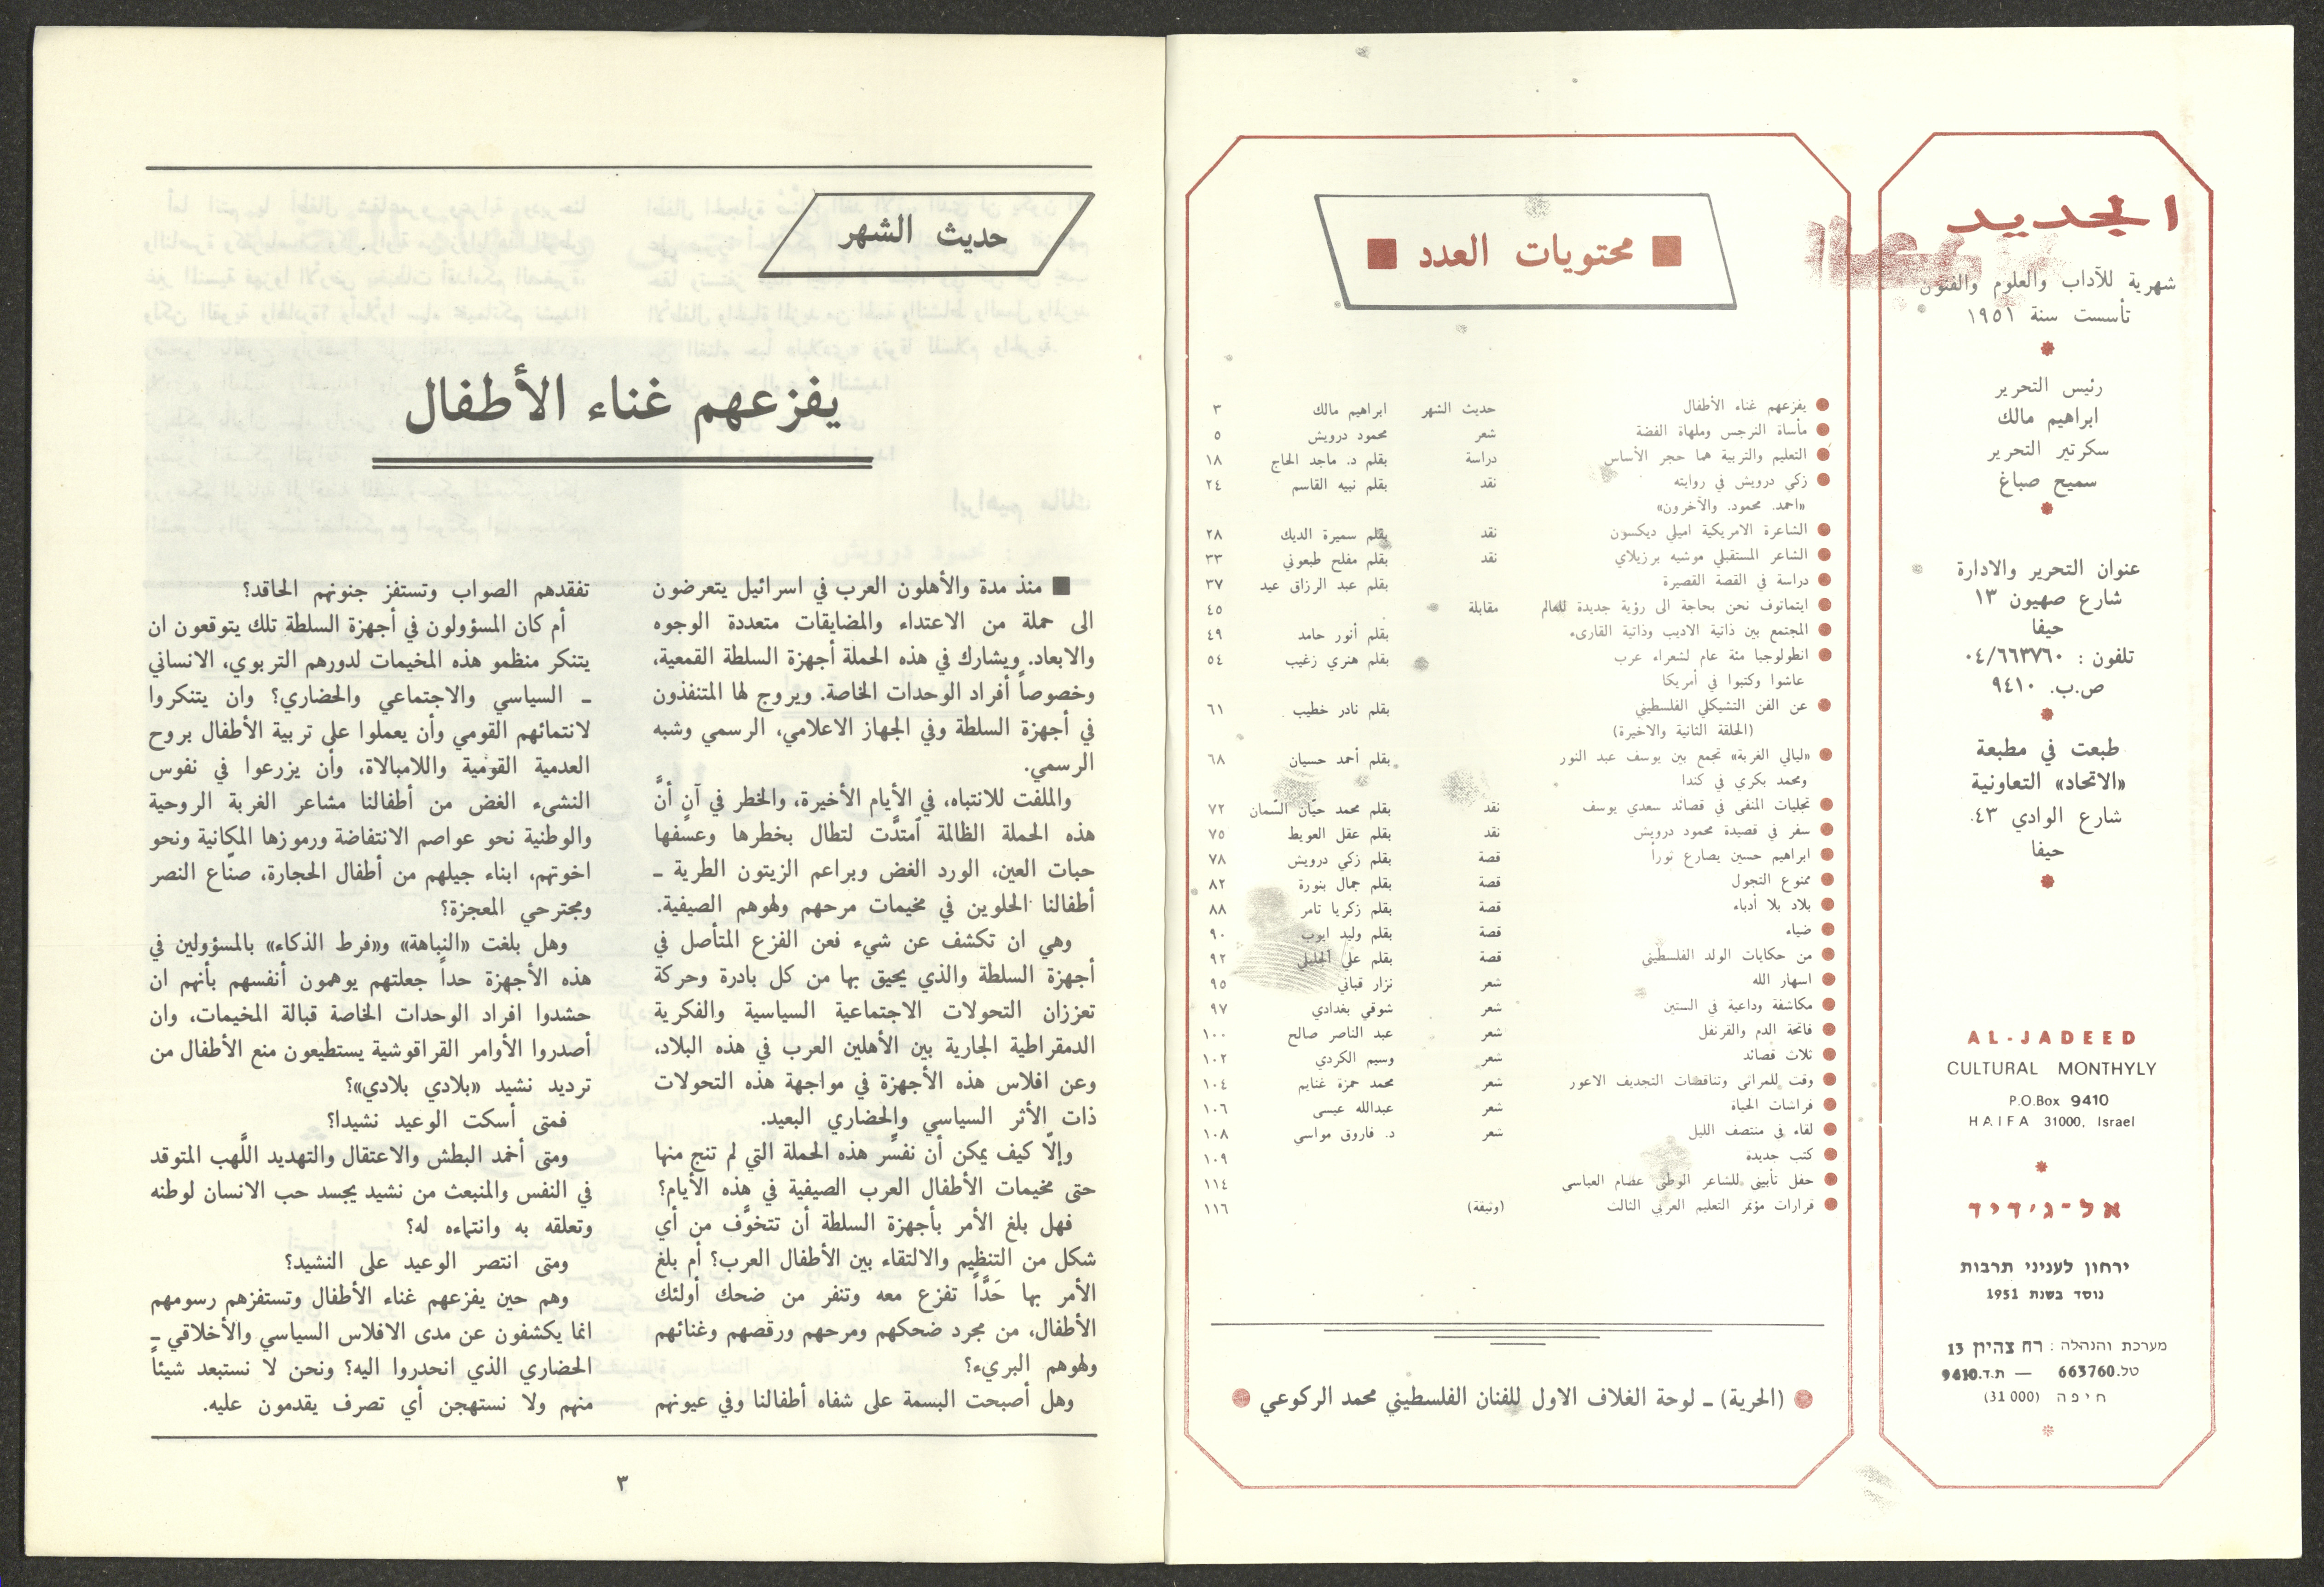 الجديد
شهرية للآداب والعلوم والفنون
تأسست سنة ١٩٥١
رئيس التحرير
ابراهيم مالك
سكرتير التحرير
سميح صباغ
عنوان التحرير والادارة
شارع صهيون ١٣
حيفا
تلفون : ٠٤/٦٦٣٧٦٠
ص.ب. ٩٤١٠
طبعت في مطبعة
«الاتحاد» التعاونية
شارع الوادي ٤٣
حيفا
AL-JADEED
CULTURAL MONTHYLY
P.O.Box 9410
HAIFA 31000, Israel
אל-ג'דיד
ירחון לעניני תרבות
נוסד בשנת 1951
מערכת והנהלה : רח צהיון 13
טל.663760 — ת.ד.9410
חיפה (31000)
محتويات العدد
يفزعهم غناء الأطفال حديث الشهر ابراهيم مالك ٣
مأساة النرجس وملهاة الفضة شعر محمود درويش ٥
التعليم والتربية هما حجر الأساس دراسة بقلم د. ماجد الحاج ١٨
زكي درويش في روايته نقد بقلم نبيه القاسم ٢٤
«احمد. محمود. والآخرون»
الشاعرة الامريكية اميلي ديكسون نقد بقلم سميرة الديك ٢٨
الشاعر المستقبلي موشيه برزيلاي نقد بقلم مفلح طبعوني ٣٣
دراسة في القصة القصيرة بقلم عبد الرزاق عيد ٣٧
ايتماتوف نحن بحاجة الى رؤية جديدة للعالم مقابلة ٤٥
المجتمع بين ذاتية الاديب وذاتية القارىء بقلم أنور حامد ٤٩
انطولوجيا مئة عام لشعراء عرب بقلم هنري زغيب ٥٤
عاشوا وكتبوا في أمريكا
عن الفن التشيكلي الفلسطيني بقلم نادر خطيب ٦١
(الحلقة الثانية والاخيرة)
«ليالي الغربة» تجمع بين يوسف عبد النور بقلم أحمد حسيان ٦٨
ومحمد بكري في كندا
تجليات المنفى في قصائد سعدي يوسف نقد بقلم محمد حيّان السّمان ٧٢
سفر في قصيدة محمود درويش نقد بقلم عقل العويط ٧٥
ابراهيم حسين يصارع ثوراً قصة بقلم زكي درويش ٧٨
ممنوع التجول قصة بقلم جمال بنورة ٨٢
بلاد بلا أدباء قصة بقلم زكريا تامر ٨٨
ضياء قصة بقلم وليد ايوب ٩٠
من حكايات الولد الفلسطيني قصة بقلم علي الجليلي ٩٢
اسهار الله شعر نزار قباني ٩٥
مكاشفة وداعية في الستين شعر شوقي بغدادي ٩٧
فاتحة الدم والقرنفل شعر عبد الناصر صالح ١٠٠
ثلاث قصائد شعر وسيم الكردي ١٠٢
وقت للمراثي وتناقضات التجديف الاعور شعر محمد حمزة غنايم ١٠٤
فراشات الحياة شعر عبدالله عيسى ١٠٦
لقاء في منتصف الليل شعر د. فاروق مواسي ١٠٨
كتب جديدة ١٠٩
حفل تأبيني للشاعر الوطني عصام العباسي ١١٤
قرارات مؤتمر التعليم العربي الثالث (وثيقة) ١١٦
(الحرية) ـ لوحة الغلاف الاول للفنان الفلسطيني محمد الركوعي
حديث الشهر
يفزعهم غناء الأطفال
منذ مدة والأهلون العرب في اسرائيل يتعرضون
الى حملة من الاعتداء والمضايقات متعددة الوجوه
والابعاد. ويشارك في هذه الحملة أجهزة السلطة القمعية،
وخصوصاً أفراد الوحدات الخاصة. ويروج لها المتنفذون
في أجهزة السلطة وفي الجهاز الاعلامي، الرسمي وشبه
الرسمي.
والملفت للانتباه، في الأيام الأخيرة، والخطر في آنٍ أنَّ
هذه الحملة الظالمة اُمتدَّت لتطال بخطرها وعسفها
حبات العين، الورد الغض وبراعم الزيتون الطرية ـ
أطفالنا الحلوين في مخيمات مرحهم ولهوهم الصيفية.
وهي ان تكشف عن شيء فعن الفزع المتأصل في
أجهزة السلطة والذي يحيق بها من كل بادرة وحركة
تعززان التحولات الاجتماعية السياسية والفكرية
الدمقراطية الجارية بين الأهلين العرب في هذه البلاد،
وعن افلاس هذه الأجهزة في مواجهة هذه التحولات
ذات الأثر السياسي والحضاري البعيد.
وإلّا كيف يمكن أن نفسَّر هذه الحملة التي لم تنج منها
حتى مخيمات الأطفال العرب الصيفية في هذه الأيام؟
فهل بلغ الأمر بأجهزة السلطة أن تتخوَّف من أي
شكل من التنظيم والالتقاء بين الأطفال العرب؟ أم بلغ
الأمر بها حَدَّاً تفزع معه وتنفر من ضحك أولئك
الأطفال، من مجرد ضحكهم ومرحهم ورقصهم وغنائهم
ولهوهم البريء؟
وهل أصبحت البسمة على شفاه أطفالنا وفي عيونهم
تفقدهم الصواب وتستفز جنونهم الحاقد؟
أم كان المسؤولون في أجهزة السلطة تلك يتوقعون ان
يتنكر منظمو هذه المخيمات لدورهم التربوي، الانساني
ـ السياسي والاجتماعي والحضاري؟ وان يتنكروا
لانتمائهم القومي وأن يعملوا على تربية الأطفال بروح
العدمية القوّمية واللامبالاة، وأن يزرعوا في نفوس
النشىء الغض من أطفالنا مشاعر الغربة الروحية
والوطنية نحو عواصم الانتفاضة ورموزها المكانية ونحو
اخوتهم، ابناء جيلهم من أطفال الحجارة، صنّاع النصر
ومجترحي المعجزة؟
وهل بلغت «النباهة» و«فرط الذكاء» بالمسؤولين في
هذه الأجهزة حداً جعلتهم يوهمون أنفسهم بأنهم ان
حشدوا افراد الوحدات الخاصة قبالة المخيمات، وان
أصدروا الأوامر القراقوشية يستطيعون منع الأطفال من
ترديد نشيد «بلادي بلادي»؟
فمتى أسكت الوعيد نشيدا؟
ومتى أخمد البطش والاعتقال والتهديد اللَّهب المتوقد
في النفس والمنبعث من نشيد يجسد حب الانسان لوطنه
وتعلقه به وانتماءه له؟
ومتى انتصر الوعيد على النشيد؟
وهم حين يفزعهم غناء الأطفال وتستفزهم رسومهم
انما يكشفون عن مدى الافلاس السياسي والأخلاقي ـ
الحضاري الذي انحدروا اليه؟ ونحن لا نستبعد شيئاً
منهم ولا نستهجن أي تصرف يقدمون عليه.
٣